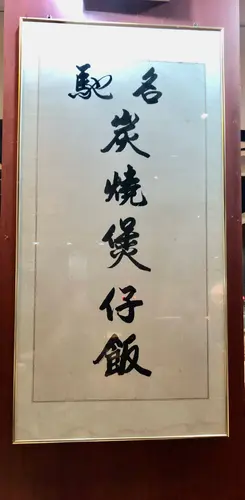 馳名
炭燒煲仔飯